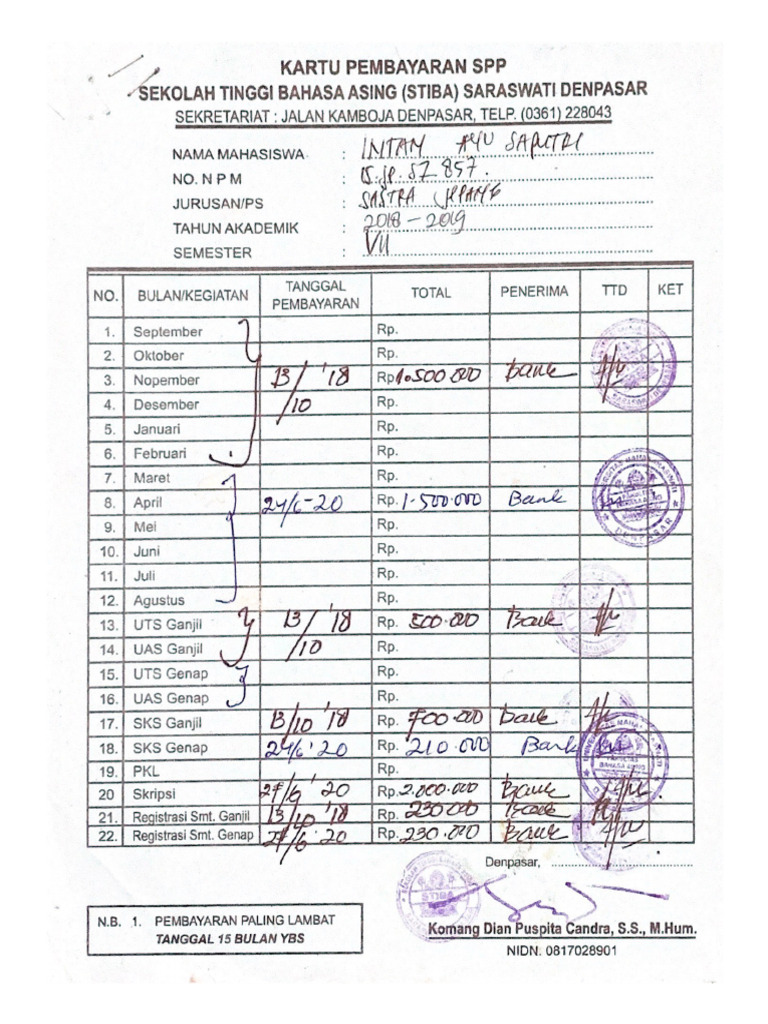 KARTU PEMBAYARAN SPP
SEKOLAH TINGGI BAHASA ASING (STIBA) SARASWATI DENPASAR
SEKRETARIAT : JALAN KAMBOJA DENPASAR, TELP. (0361) 228043
NAMA MAHASISWA : INTAN AYU SAPUTRI
NO. N P M : 15.JP.SZ 857.
JURUSAN/PS : SASTRA JEPANG
TAHUN AKADEMIK : 2018 - 2019
SEMESTER : VII
NO. BULAN/KEGIATAN TANGGAL PEMBAYARAN TOTAL PENERIMA TTD KET
1. September Rp.
2. Oktober Rp.
3. Nopember 13/10 '18 Rp. 1.500.000 Bank
4. Desember Rp.
5. Januari Rp.
6. Februari Rp.
7. Maret Rp.
8. April 24/6-20 Rp. 1.500.000 Bank
9. Mei Rp.
10. Juni Rp.
11. Juli Rp.
12. Agustus Rp.
13. UTS Ganjil 13/10 '18 Rp. 500.000 Bank
14. UAS Ganjil Rp.
15. UTS Genap Rp.
16. UAS Genap Rp.
17. SKS Ganjil 13/10 '18 Rp. 700.000 Bank
18. SKS Genap 24/6'20 Rp. 210.000 Bank
19. PKL Rp.
20 Skripsi 27/6 '20 Rp. 2.000.000 Bank
21. Registrasi Smt. Ganjil 13/10 '18 Rp. 230.000 Bank
22. Registrasi Smt. Genap 27/6 '20 Rp. 230.000 Bank
Denpasar,
N.B. 1. PEMBAYARAN PALING LAMBAT
TANGGAL 15 BULAN YBS
STIBA
Komang Dian Puspita Candra, S.S., M.Hum.
NIDN: 0817028901